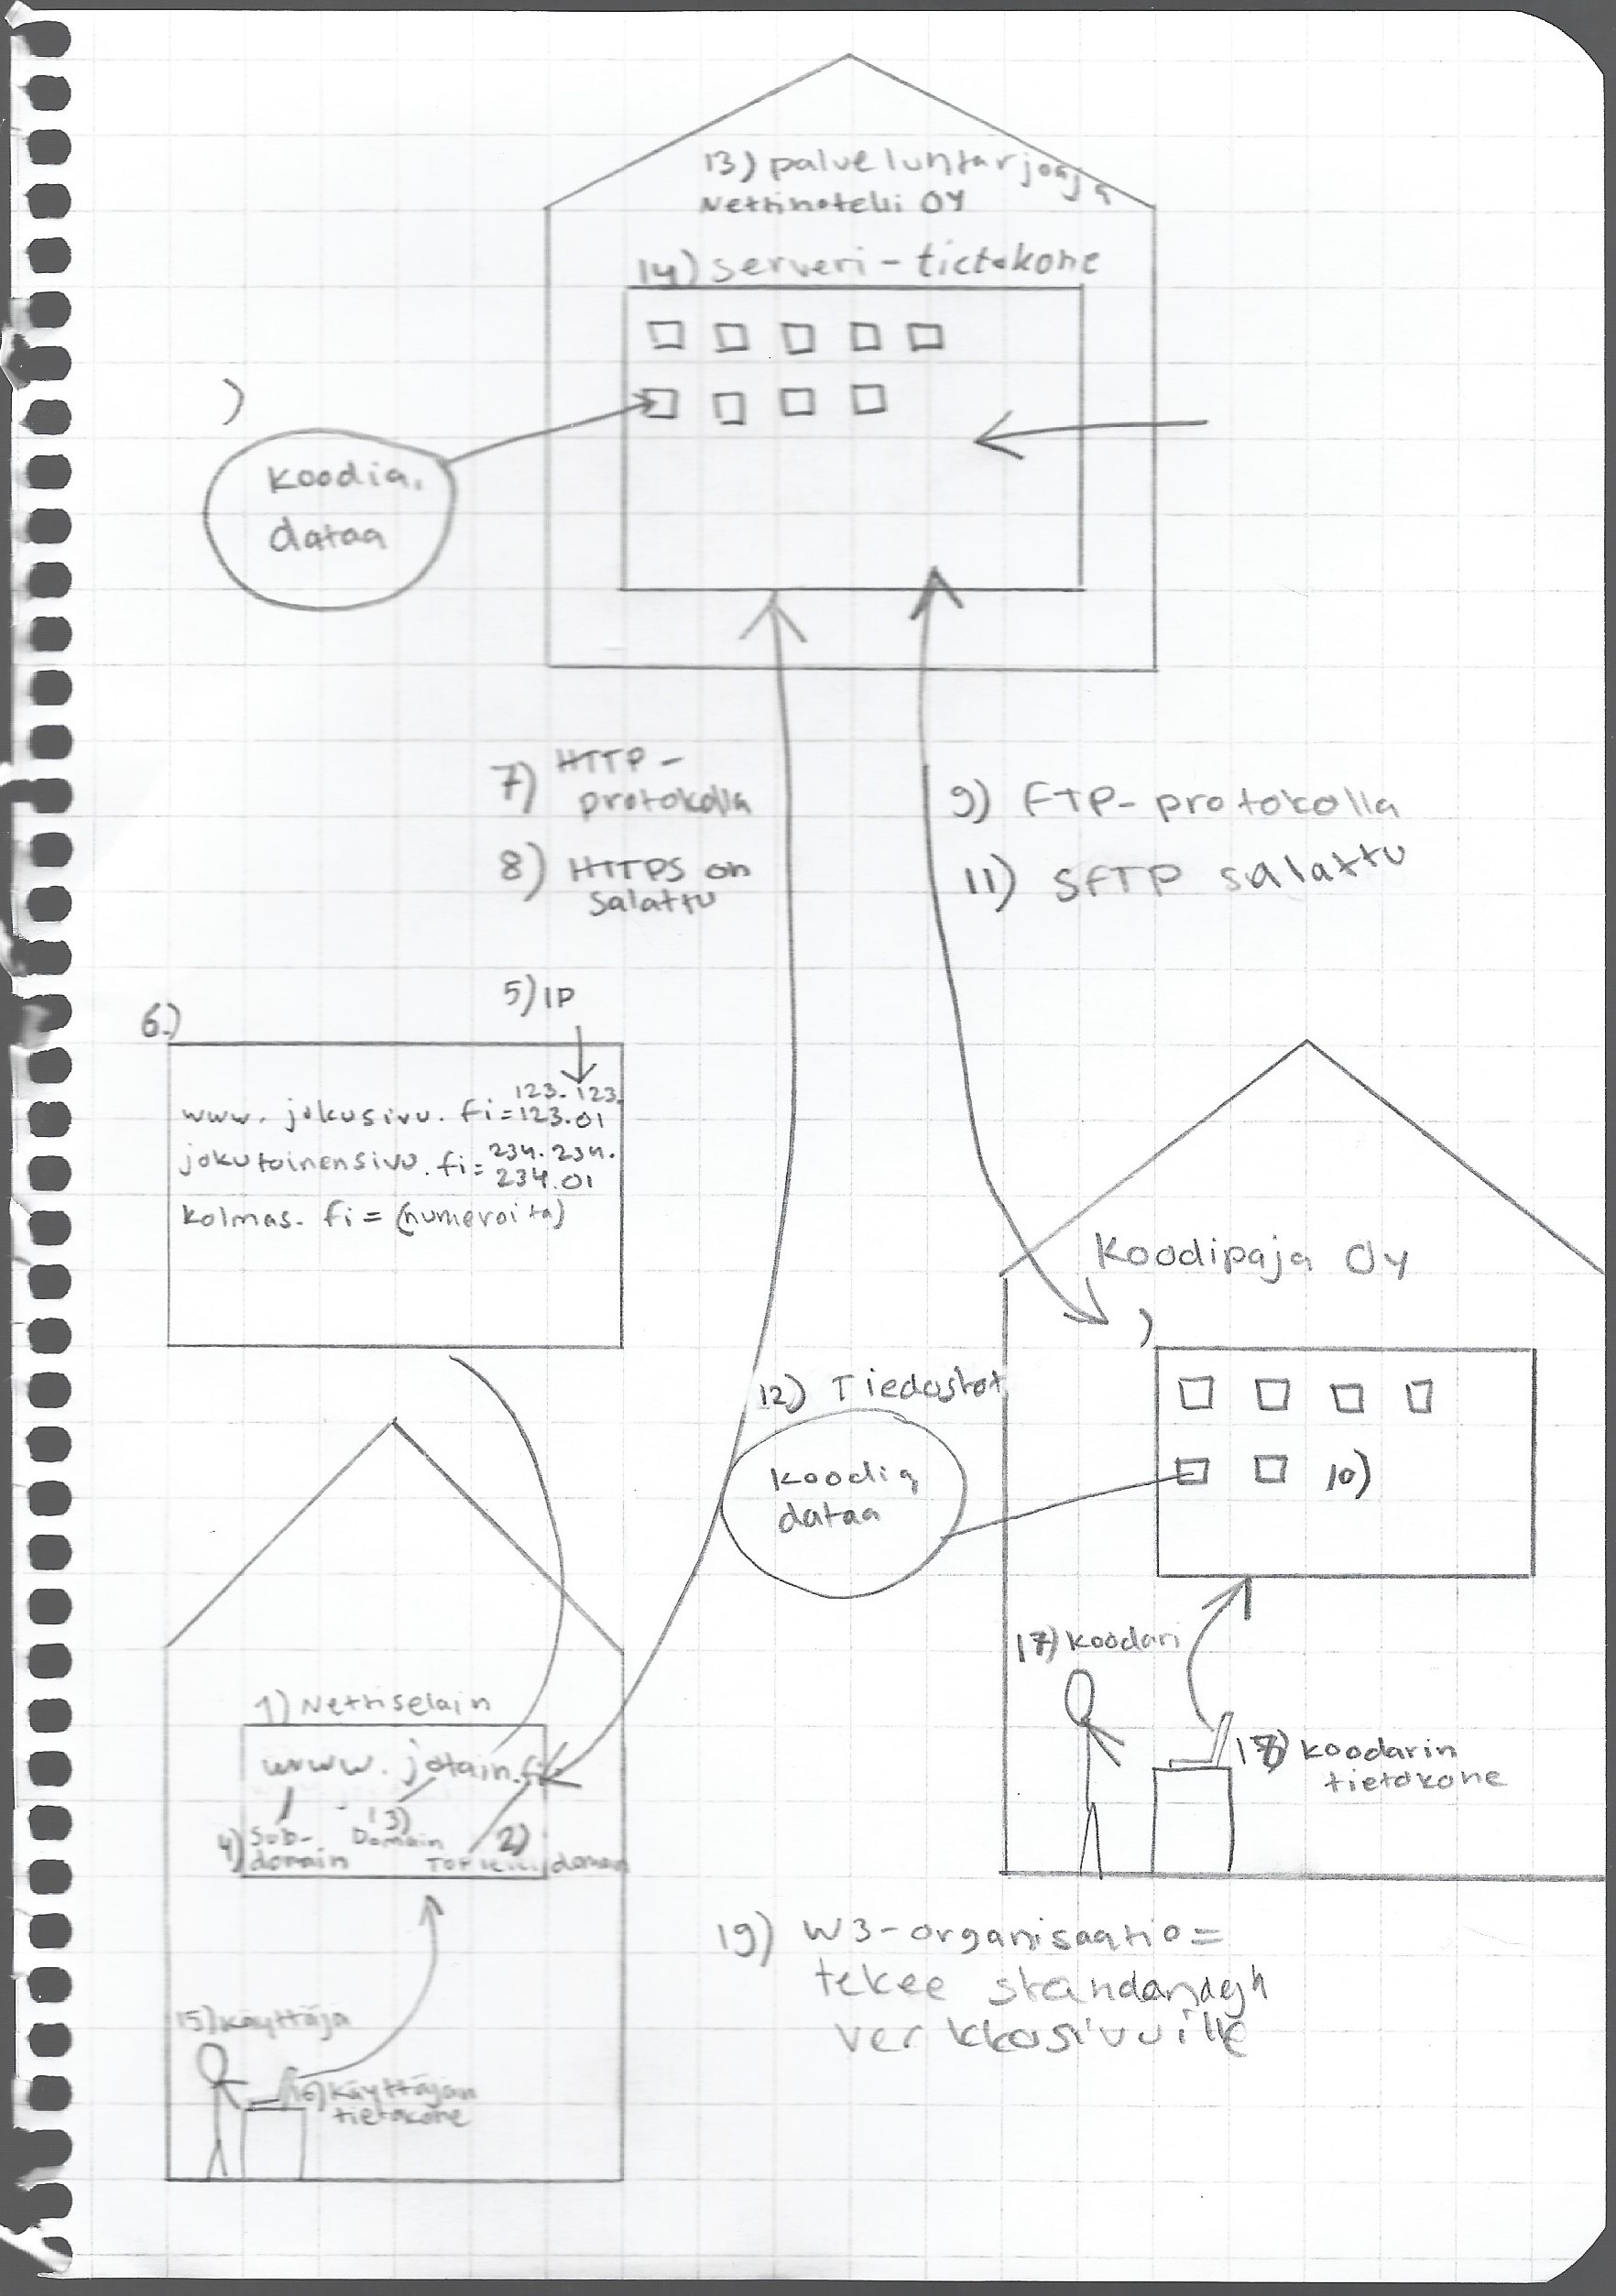 13) palveluntarjoaja
Nettihotelli OY
14) serveri-tietokone
)
koodia,
dataa
7) HTTP-
protokolla
8) HTTPS on
salattu
9) FTP-protokolla
11) SFTP salattu
5) IP
6.)
123.123.
www.jokusivu.fi=123.01
jokutoinensivu.fi=234.234.
234.01
kolmas.fi=(numeroita)
Koodipaja Oy
)
12) Tiedostot
koodia
dataa
10)
17) koodari
18) koodarin
tietokone
1) Nettiselain
www.jotain.fi
4) Sub-
domain
3)
Domain
2)
domain
15) käyttäjä
16) Käyttäjän
tietokone
19) W3-organisaatio=
tekee
verkkosivuille